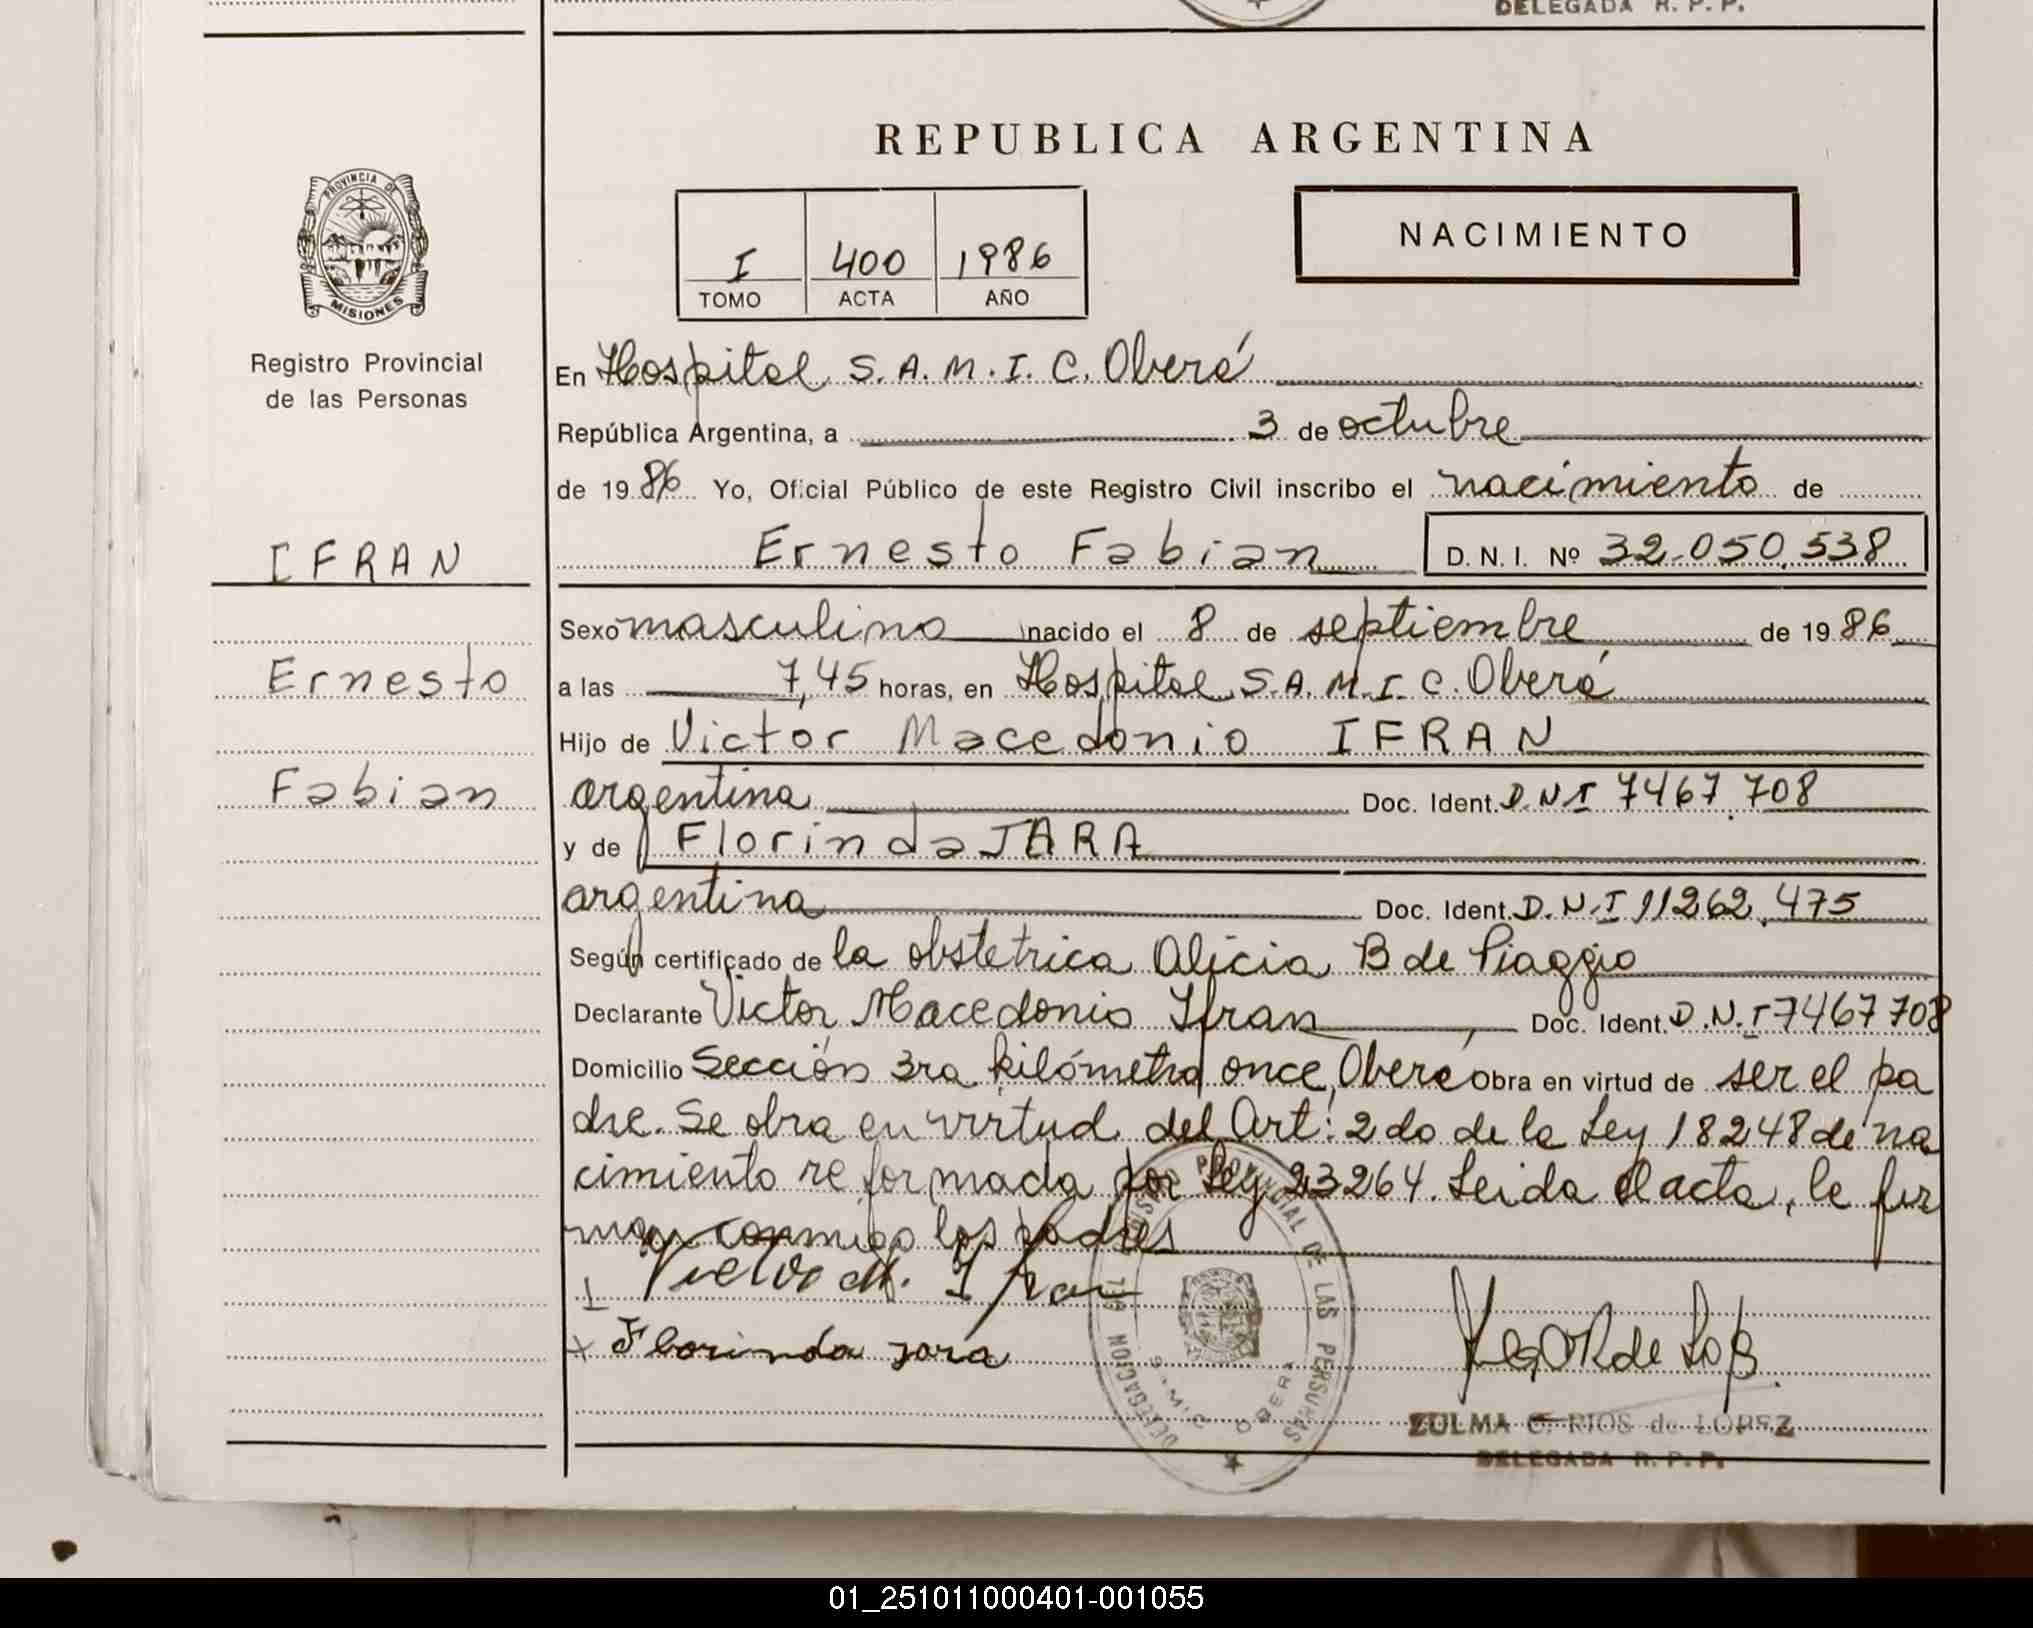 DELEGADA R. P. P.
REPUBLICA ARGENTINA
PROVINCIA DE
MISIONES
Registro Provincial
de las Personas
I 400 1986
TOMO ACTA AÑO
NACIMIENTO
En Hospital S.A.M.I.C. Oberá
República Argentina, a 3 de octubre
de 1986 Yo, Oficial Público de este Registro Civil inscribo el nacimiento de
Ernesto Fabian D. N. I. Nº 32.050.538
IFRAN
Ernesto
Fabian
Sexo masculino nacido el 8 de septiembre de 1986
a las 7,45 horas, en Hospital S.A.M.I.C. Oberá
Hijo de Victor Macedonio IFRAN
argentina Doc. Ident. D.N.I 7467.708
y de Florinda JARA
argentina Doc. Ident. D.N.I 11262.475
Según certificado de la obstetrica Alicia B de Piaggio
Declarante Victor Macedonio Ifran, Doc. Ident. D.N.I 7467708
Domicilio Sección 3ra kilómetro once, Oberá Obra en virtud de ser el pa
dre. Se obra en virtud del Art: 2do de la Ley 18248 de na
cimiento reformada por Ley 23264. Leida el acta, le fir
man conmigo los padres
Victor M. Ifran
x Florinda Jara
REGISTRO PROVINCIAL DE LAS PERSONAS
DELEGACION 719
S.A.M.I.C. OBERA
ZULMA C. RIOS de LOPEZ
DELEGADA R. P. P.
01_251011000401-001055